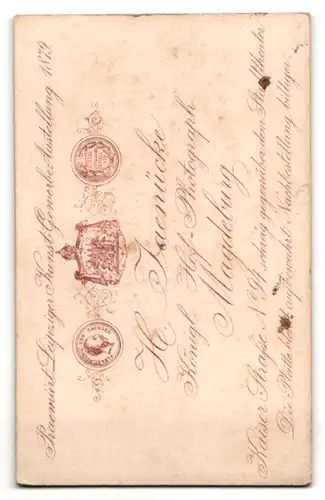 Praemiirt Leipziger Kunst-Gewerbe-Ausstellung 1879.
H. Jaenücke
Königl. Hof-Photograph
Magdeburg
Kaiser Straße N 91, schräg gegenüber dem Stadttheater
Die Platte bleibt aufbewahrt. Nachbestellung billiger.